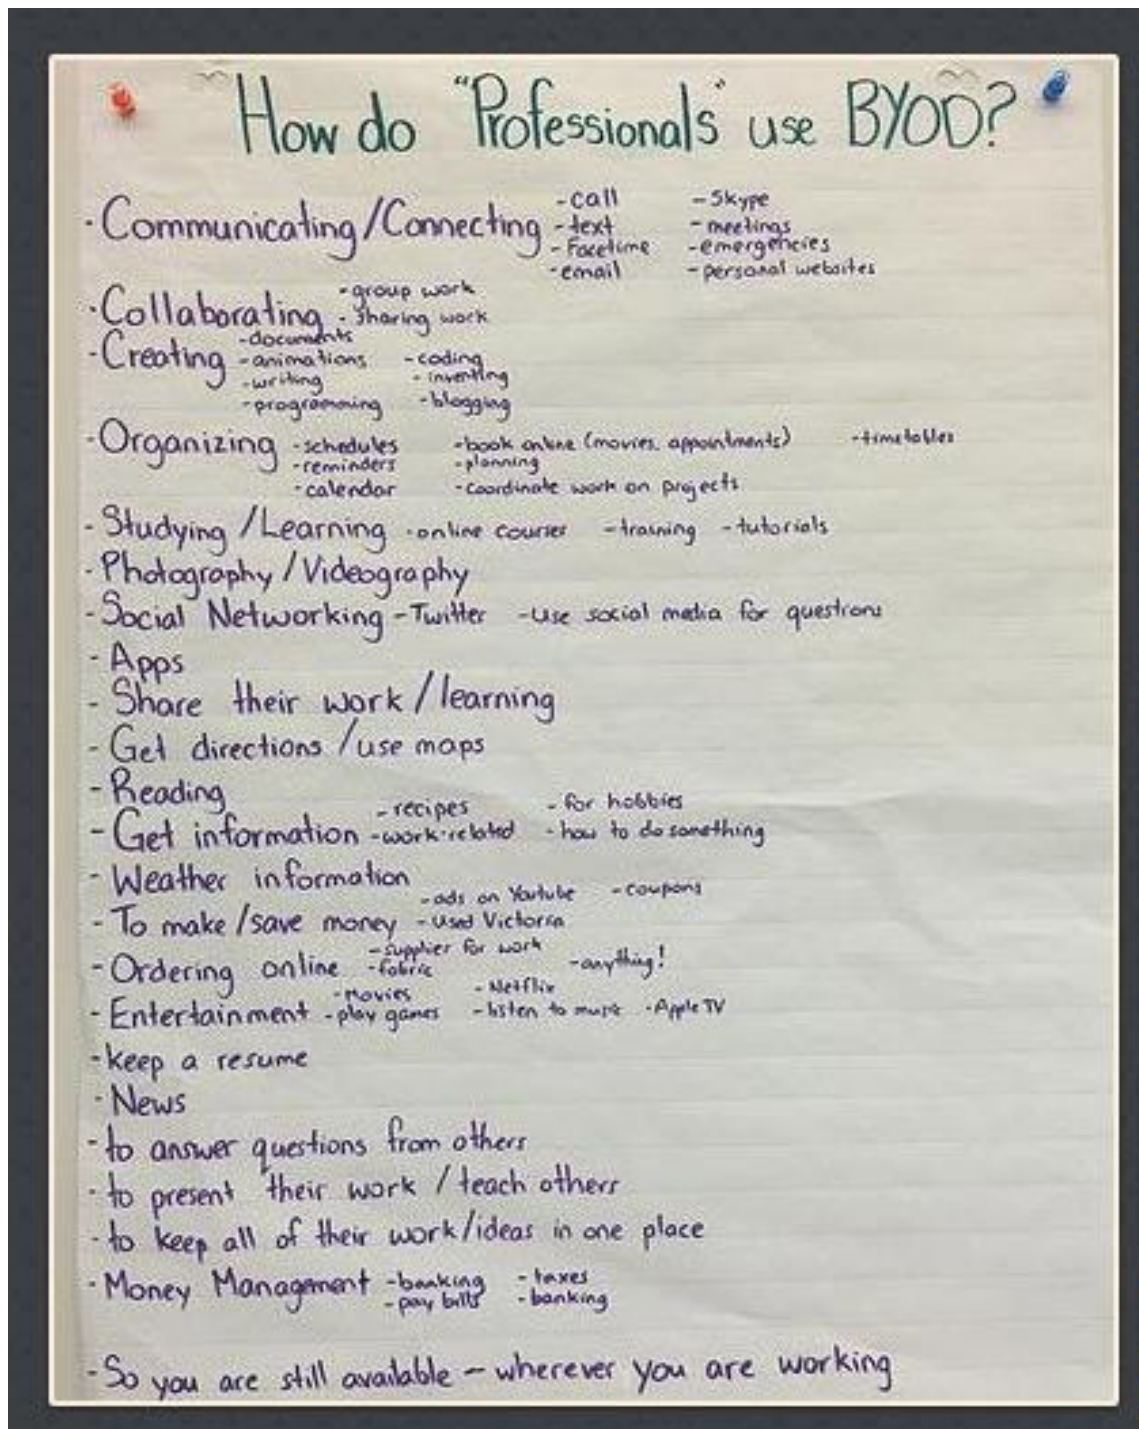 How do "Professionals" use BYOD?
- Communicating/Connecting - call - Skype
- text - meetings
- Facetime - emergencies
- email - personal websites
- Collaborating - group work
- sharing work
- Creating - documents
- animations - coding
- writing - inventing
- programming - blogging
- Organizing - schedules - book online (movies, appointments) - timetables
- reminders - planning
- calendar - coordinate work on projects
- Studying/Learning - online courses - training - tutorials
- Photography/Videography
- Social Networking - Twitter - Use social media for questions
- Apps
- Share their work/learning
- Get directions/use maps
- Reading
- Get information - recipes - for hobbies
- work-related - how to do something
- Weather information
- To make/save money - ads on Youtube - coupons
- Used Victoria
- Ordering online - supplier for work
- fabric - anything!
- Entertainment - Movies - Netflix
- play games - listen to music - Apple TV
- keep a resume
- News
- to answer questions from others
- to present their work / teach others
- to keep all of their work/ideas in one place
- Money Management - banking - taxes
- pay bills - banking
- So you are still available - wherever you are working